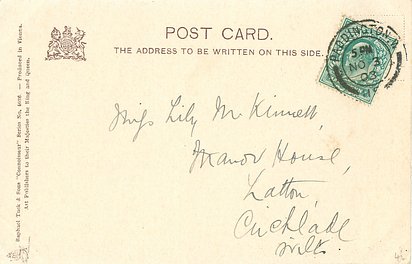 POST CARD.
THE ADDRESS TO BE WRITTEN ON THIS SIDE.
PADDINGTON
5 PM
NO 3
03
Miss Lily McKinnell,
Manor House,
Latton,
Cricklade
Wilts.
Raphael Tuck & Sons "Connoisseur" Series No. — Produced in Vienna.
Art Publishers to their Majesties the King and Queen.